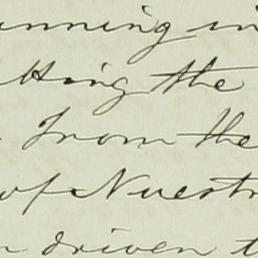 unning in
tting the
from the
of Nuestr
driven t